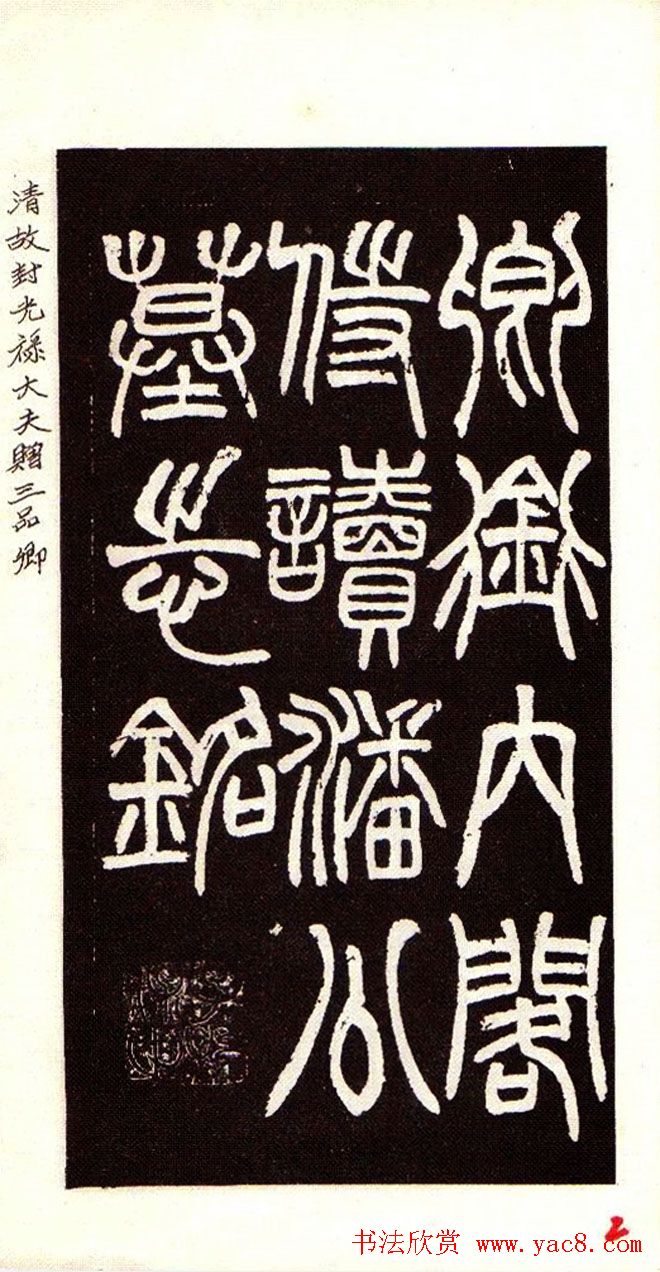 卿銜内閣
侍讀潘公
墓志銘
清故封光禄大夫贈三品卿
书法欣赏 www.yac8.com